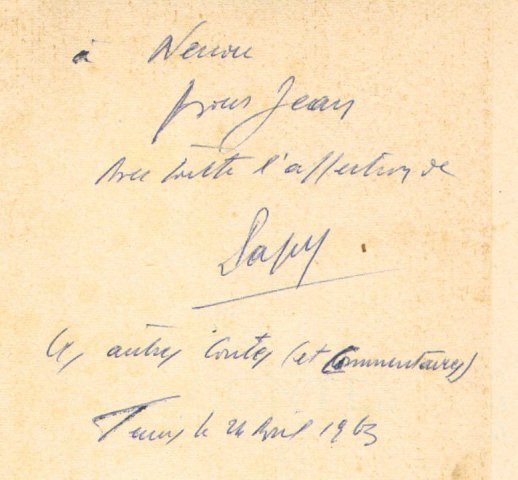 à Nenou
pour Jean
Avec toute l'affection de
Papy
Ces autres contes (et Commentaires)
Tunis le 24 Avril 1963